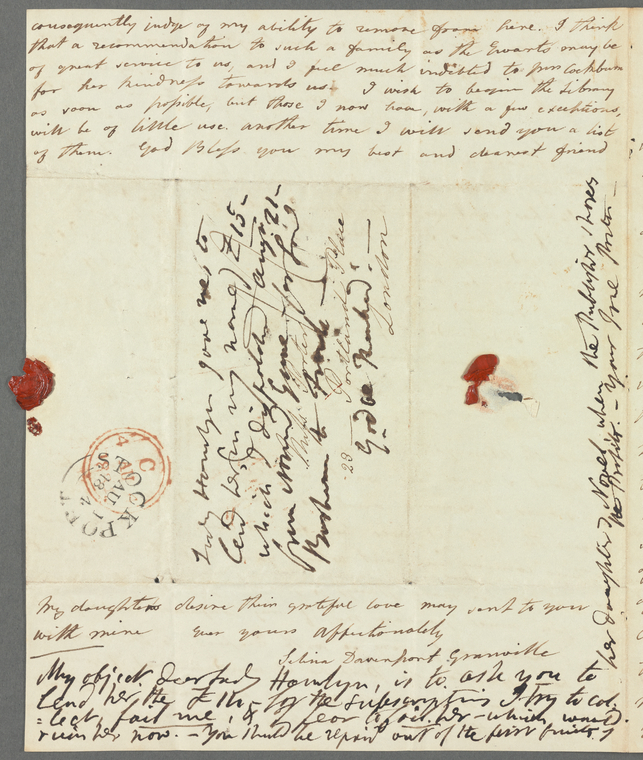 consequently judge of my ability to remove from here. I think
that a recommendation to such a family as the Ewarts may be
of great service to us, and I feel much indebted to Mrs Cockburn
for her kindness towards us. I wish to begin the Library
as soon as possible, but those I now have, with a few exceptions,
will be of little use. another time I will send you a list
of them. God Bless you my best and dearest friend
Lady Hamlyn gave me to
lend her in my name £15-
which I dispatched augt 21-
from
28 Portland Place
London
STOCKPORT
My daughters desire their grateful love may sent to you
with mine Ever yours affectionately
Selina Davenport Granville
My object, dear Lady Hamlyn, is to ask you to
lend her the £15- if the subscriptions I try to col
=lect, fail me, & I fear
ruin her now. - You should be repaid out of the first fruits of
her daughter's Novel when the Publisher shares
the Profits. - Your Jane Porter -